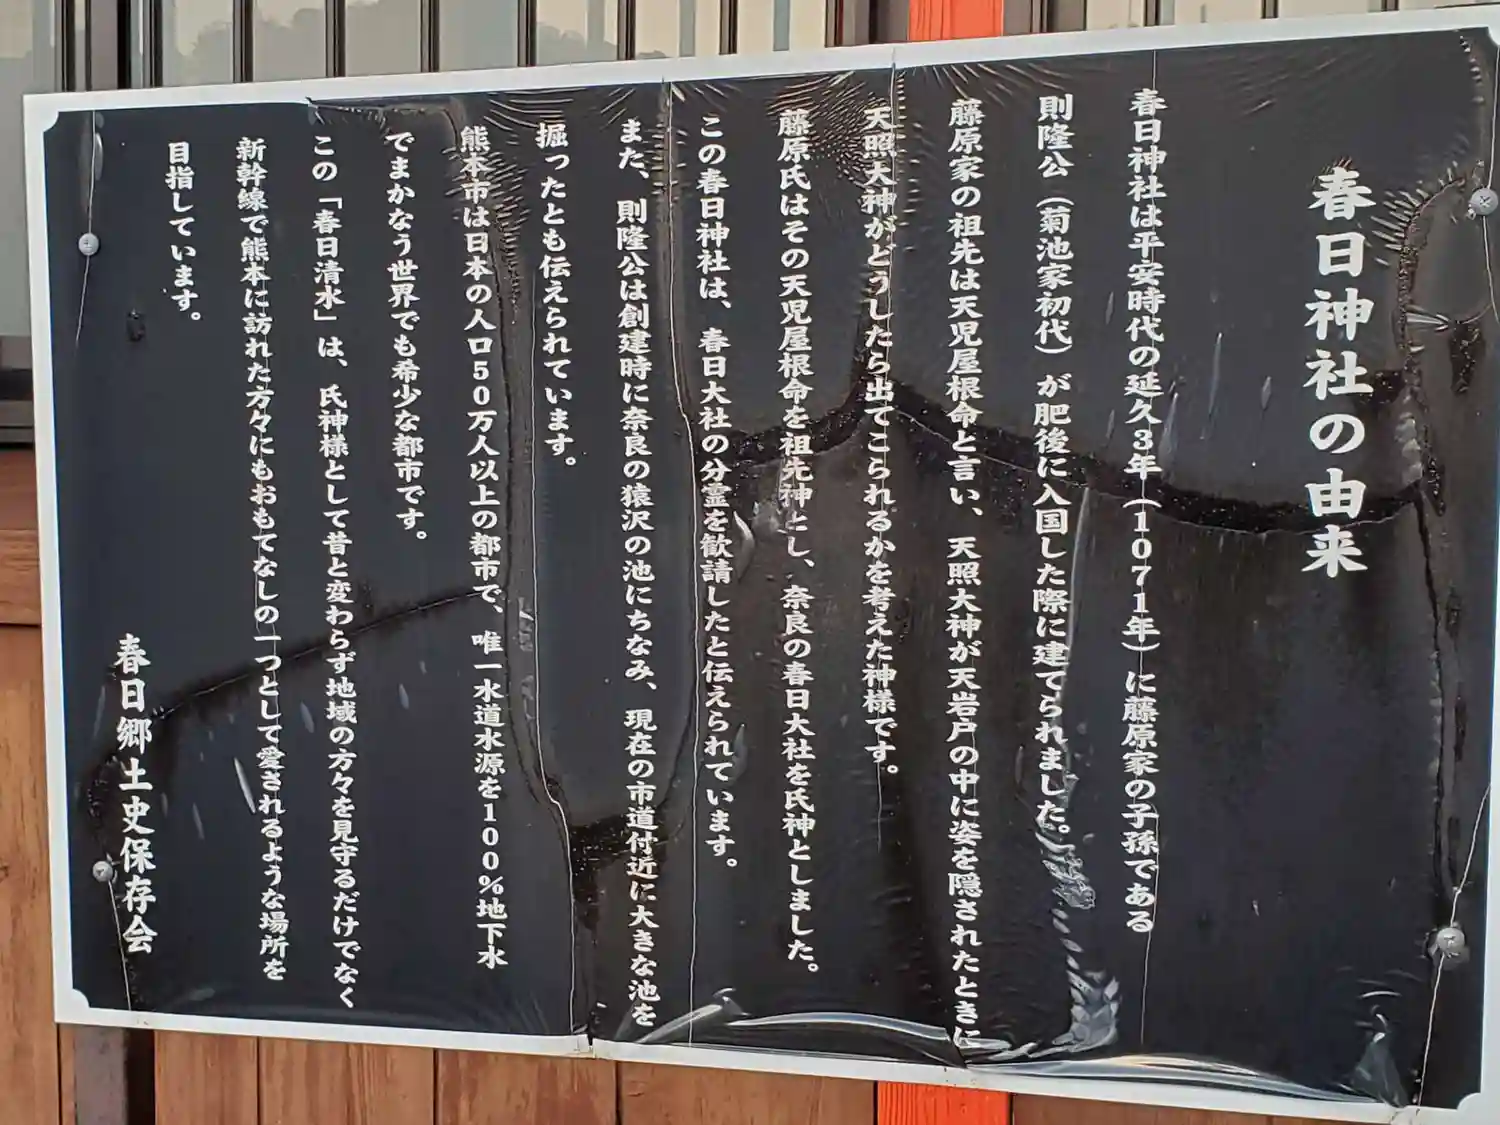 春日神社の由来
春日神社は平安時代の延久3年（1071年）に藤原家の子孫である
則隆公（菊池家初代）が肥後に入国した際に建てられました。
藤原家の祖先は天児屋根命と言い、天照大神が天岩戸の中に姿を隠されたときに
天照大神がどうしたら出てこられるかを考えた神様です。
藤原氏はその天児屋根命を祖先神とし、奈良の春日大社を氏神としました。
この春日神社は、春日大社の分霊を歓請したと伝えられています。
また、則隆公は創建時に奈良の猿沢の池にちなみ、現在の市道付近に大きな池を
掘ったとも伝えられています。
熊本市は日本の人口50万人以上の都市で、唯一水道水源を100%地下水
でまかなう世界でも希少な都市です。
この「春日清水」は、氏神様として昔と変わらず地域の方々を見守るだけでなく
新幹線で熊本に訪れた方々にもおもてなしの一つとして愛されるような場所を
目指しています。
春日郷土史保存会